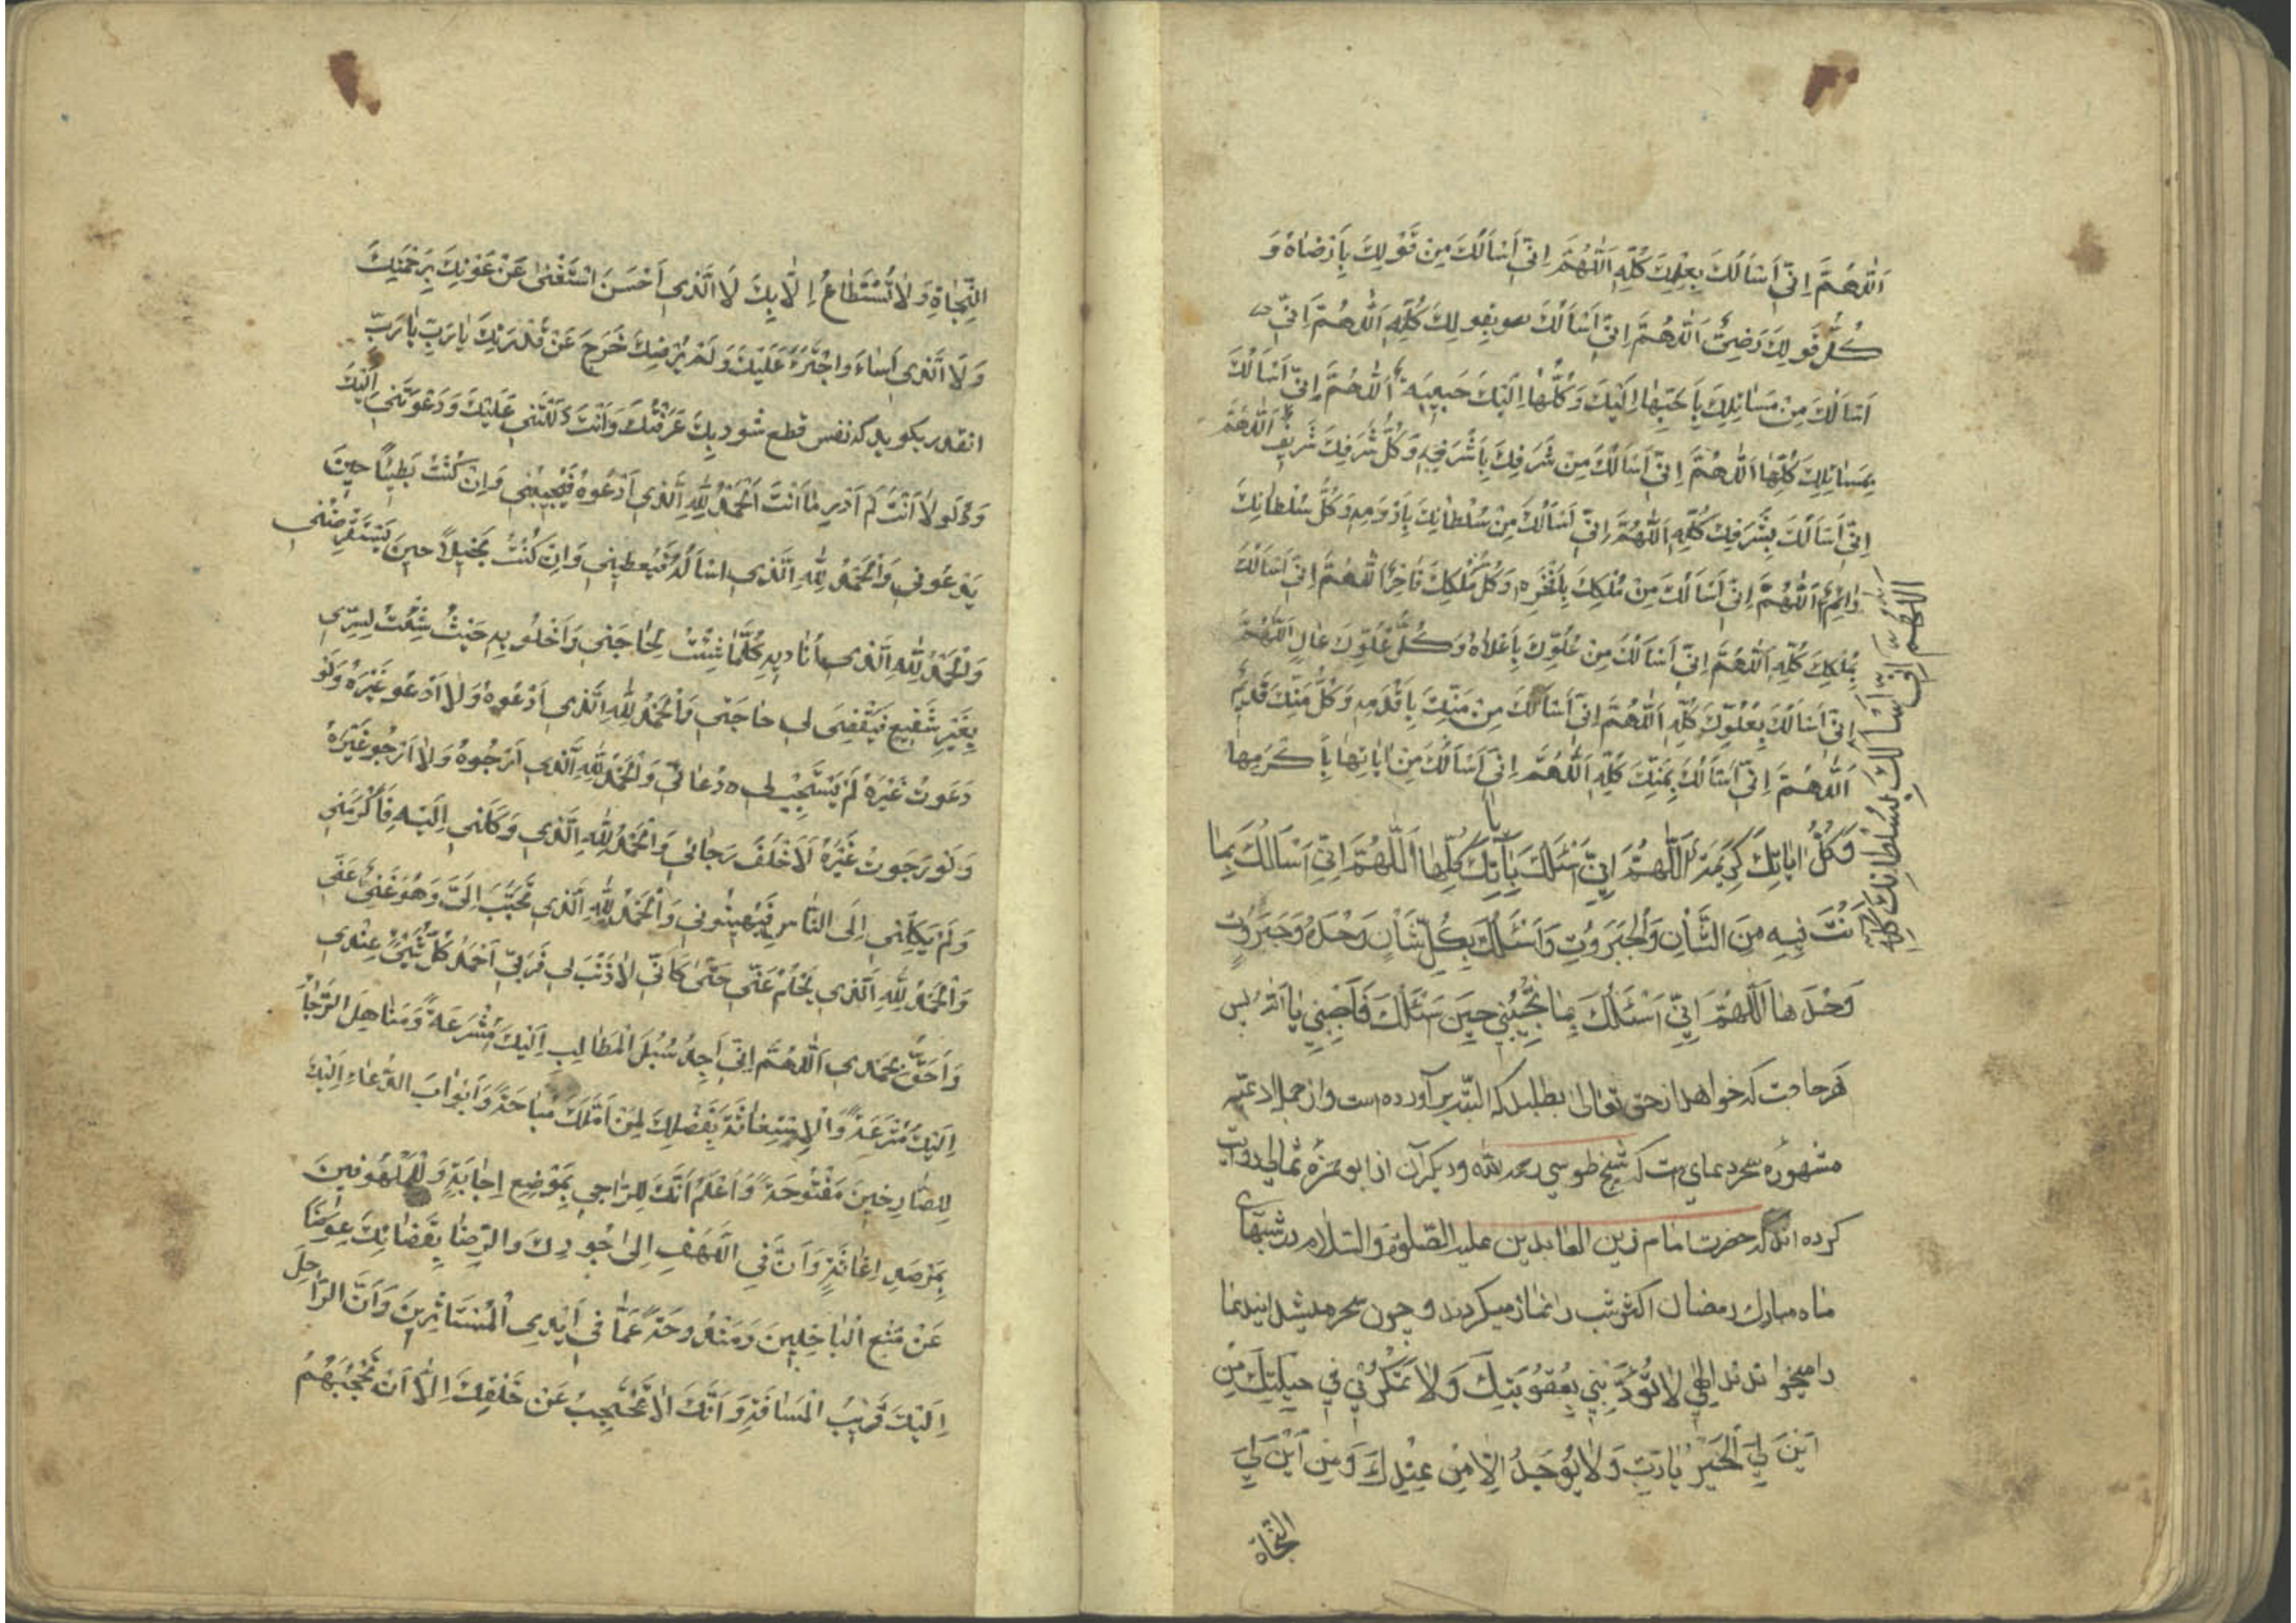 اَللّٰهُمَّ اِنّي اَسْاَلُكَ بِعِلْمِكَ كُلِّهِ اَللّٰهُمَّ اِنّي اَسْاَلُكَ مِنْ قَوْلِكَ بِاَرْضٰاهُ وَ
كُلُّ قَولِكَ رَضِيٌّ اَللّٰهُمَّ اِنّي اَسْاَلُكَ بقولِكَ كُلِّهِ اَللّٰهُمَّ اِنّي
اَسْاَلُكَ مِنْ مَسٰائِلِكَ بِاَحَبِّهٰا اِلَيْكَ وَكُلُّهٰا اِلَيْكَ حَبيبَة اَللّٰهُمَّ اِنّي اَسْاَلُكَ
بِمَسٰائِلِكَ كُلِّهٰا اَللّٰهُمَّ اِنّي اَسْاَلُكَ مِنْ شَرَفِكَ بِاَشْرَفِهِ وَكُلُّ شَرَفِكَ شَريفٌ اَللّٰهُمَّ
اِنّي اَسْاَلُكَ بِشَرَفِكَ كُلِّهِ اَللّٰهُمَّ اِنّي اَسْاَلُكَ مِنْ سُلْطٰانِكَ بِاَدْوَمِهِ وَكُلُّ سُلْطٰانِكَ
دٰائِمٌ اَللّٰهُمَّ اِنّي اَسْاَلُكَ مِنْ مُلْكِكَ بِاَفْخَرِهِ وَكُلُّ مُلْكِكَ فٰاخِرٌ اللّٰهُمَّ اِنّي اَسْاَلُكَ
بِمُلْكِكَ كُلِّهِ اَللّٰهُمَّ اِنّي اَسْاَلُكَ مِنْ عُلُوِّكَ بِاَعْلاٰهُ وَكُلُّ عُلُوِّكَ عٰالٍ اَللّٰهُمَّ
اِنّي اَسْاَلُكَ بِعُلُوِّكَ كُلِّهِ اَللّٰهُمَّ اِنّي اَسْاَلُكَ مِنْ مَنِّكَ بِاَقْدَمِهِ وَكُلُّ مَنِّكَ قَديمٌ
اَللّٰهُمَّ اِنّي اَسْاَلُكَ بِمَنِّكَ كُلِّهِ اَللّٰهُمَّ اِنّي اَسْاَلُكَ مِنْ اٰيٰاتِهٰا بِاَكْرَمِهٰا
وَكُلُّ اٰيٰاتِكَ كَرِيمَة اَللّٰهُمَّ اِنّي اَسْئَلُكَ بِاٰيٰاتِكَ كُلِّهٰا اَللّٰهُمَّ اِنّي اَسْاَلُكَ بِمٰا
اَنْتَ فيهِ مِنَ الشَّأنِ وَالْجَبَرُوتِ وَاَسْئَلُكَ بِكُلِّ شَأنٍ وَحْدَهُ وَجَبَرُوتٍ
وَحْدَهٰا اَللّٰهُمَّ اِنّي اَسْئَلُكَ بِمٰا تُجِيبُنِي حِينَ سَئَلُكَ فَاَجِبْنِي يٰا اَللّٰه پس
هر حاجت كه خواهد از حق تعالى بطلبد كه البته برآورده است و از جمله ادعيه
مشهوره سحر دعاي است كه شيخ طوسي رحمه الله و ديكران از ابو حمزه ثمالي روايت
كرده اند كه حضرت امام زين العابدين عليه الصّلوة والسّلام در شبهاى
ماه مبارك رمضان اكثر شب را نماز ميكردند و چون سحر ميشد ايندعا
را ميخواندند اِلٰهي لاٰ تُؤَدِّبْنِي بِعُقُوبَتِكَ وَلاٰ تَمْكُرْ بي في حيلَتِكَ مِنْ
اَيْنَ لِيَ الْخَيْرُ يٰا رَبِّ وَلاٰ يُوجَدُ اِلاّٰ مِنْ عِنْدِكَ وَمِنْ اَيْنَ لِيَ
النَّجٰاة
اَللّٰهُمَّ اِنّي اَسْاَلُكَ بِسُلْطٰانِكَ كُلِّهِ
النَّجٰاةُ وَلاٰ تُسْتَطٰاعُ اِلاّٰ بِكَ لاَ الَّذي اَحْسَنَ اسْتَغْنىٰ عَنْ عَوْنِكَ بِرَحْمَتِكَ
وَلاَ الَّذي اَسٰاءَ وَاجْتَرَءَ عَلَيْكَ وَلَمْ يُرْضِكَ خَرَجَ عَنْ قُدْرَتِكَ يٰا رَبِّ يٰا رَبِّ
انقدر بكويد كه نفس قطع شود بِكَ عَرَفْتُكَ وَاَنْتَ دَلَلْتَنِي عَلَيْكَ وَدَعَوْتَني اِلَيْكَ
وَلَولاٰ اَنْتَ لَمْ اَدْرِ مٰا اَنْتَ اَلْحَمْدُ لِلّٰهِ الَّذي اَدْعُوهُ فَيُجيبُني وَاِنْ كُنْتُ بَطيئًا حينَ
يَدْعُوني وَالْحَمْدُ لِلّٰهِ الَّذي اسْاَلُهُ فَيُعطيني وَاِنْ كُنْتُ بَخيلاً حينَ يَسْتَقْرِضُني
وَالْحَمْدُ لِلّٰهِ الَّذي اُنٰاديهِ كُلَّمٰا شِئْتُ لِحٰاجَتي وَاَخْلُو بِهِ حَيْثُ شِئْتُ لِسِرّي
بِغَيْرِ شَفيعٍ فَيَقْضِىَ لي حٰاجَتي وَالْحَمْدُ لِلّٰهِ الَّذي اَدْعُوهُ وَلاٰ اَدْعُو غَيْرَهُ وَلَوْ
دَعَوتُ غَيْرَهُ لَمْ يَسْتَجِبْ لي دُعٰائي وَالْحَمْدُ لِلّٰهِ الَّذي اَرْجُوهُ وَلاٰ اَرْجُو غَيْرَهُ
وَلَوْ رَجَوتُ غَيْرَهُ لاَخْلَفَ رَجٰائي وَالْحَمْدُ لِلّٰهِ الَّذي وَكَلَني اِلَيْهِ فَاَكْرَمَني
وَلَمْ يَكِلْني اِلَى النّٰاسِ فَيُهينُوني وَالْحَمْدُ لِلّٰهِ الَّذي تَحَبَّبَ اِلَيَّ وَهُوَ غَنِيٌّ عَنّي
وَالْحَمْدُ لِلّٰهِ الَّذي يَحْلُمُ عَنّي حَتّىٰ كَاَنّي لاٰ ذَنْبَ لي فَرَبّي اَحْمَدُ كُلِّ شَيْئٍ عِنْدي
وَاَحَقُّ بِحَمْدي اَللّٰهُمَّ اِنّي اَجِدُ سُبُلَ الْمَطٰالِبِ اِلَيْكَ مُشْرَعَةً وَمَنٰاهِلَ الرَّجٰاءِ
اِلَيْكَ مُتْرَعَةً وَالْاِسْتِعٰانَةَ بِفَضْلِكَ لِمَنْ اَمَّلَكَ مُبٰاحَةً وَاَبْوٰابَ الدُّعٰاءِ اِلَيْكَ
لِلصّٰارِخينَ مَفْتُوحَةً وَاَعْلَمُ اَنَّكَ لِلرّٰاجي بِمَوْضِعِ اِجٰابَةٍ وَلِلْمَلْهُوفينَ
بِمَرْصَدِ اِغٰاثَةٍ وَاَنَّ فِي اللَّهَفِ اِلىٰ جُودِكَ وَالرِّضٰا بِقَضٰائِكَ عِوَضًا
عَنْ مَنْعِ الْبٰاخِلينَ وَمَنْدُوحَةً عَمّٰا في اَيْدِي الْمُسْتَاْثِرينَ وَاَنَّ الرّٰاحِلَ
اِلَيْكَ قَريبُ الْمَسٰافَةِ وَاَنَّكَ لاٰ تَحْتَجِبُ عَنْ خَلْقِكَ اِلاّٰ اَنْ تَحْجُبَهُمُ